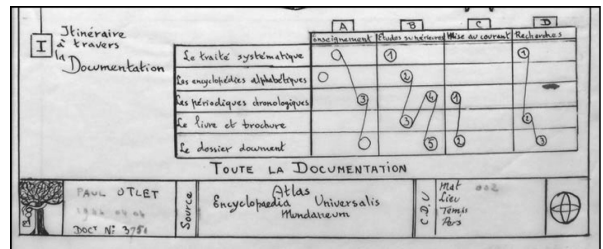 A B C D
I
Itinéraire
à travers
la Documentation
Enseignement Etudes supérieures Mise au courant Recherches
Le traité systématique 1 1
Les encyclopédies alphabétiques 2
Les périodiques chronologiques 3 4 1
Le livre et brochure 3 2
Le dossier document 5 2 3
TOUTE LA DOCUMENTATION
PAUL OTLET
DOCT N°
Source
Atlas
Encyclopaedia Universalis
Mundaneum
C.D.U
Mat 002
Lieu
Temps